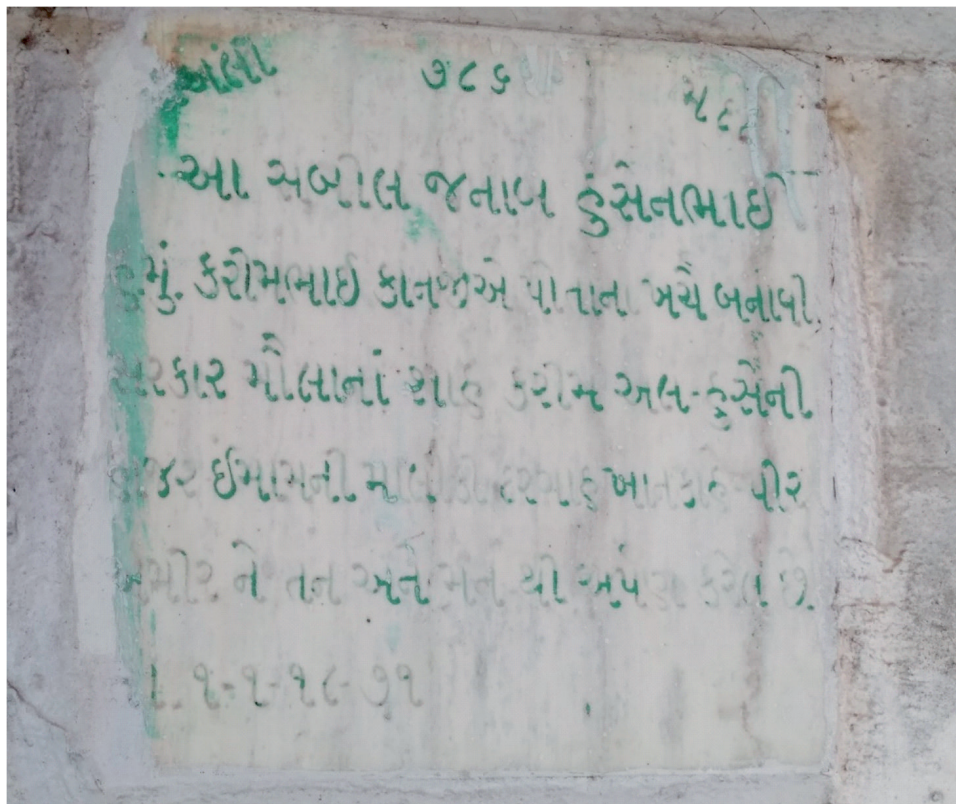 અલી ૭૮૬ મદદ
આ સબીલ જનાબ હુસેનભાઈ
હુમું. કરીમભાઈ કાનજીએ પોતાના ખર્ચે બનાવી.
સરકાર મૌલાનાં શાહ કરીમ અલ-હુસૈની
હાજર ઈમામની માલીકી દરગાહ ખાનકાહે પીર
ને તન અને મન થી અર્પણ કરેલ છે.
૧-૧-૧૯-૭૧